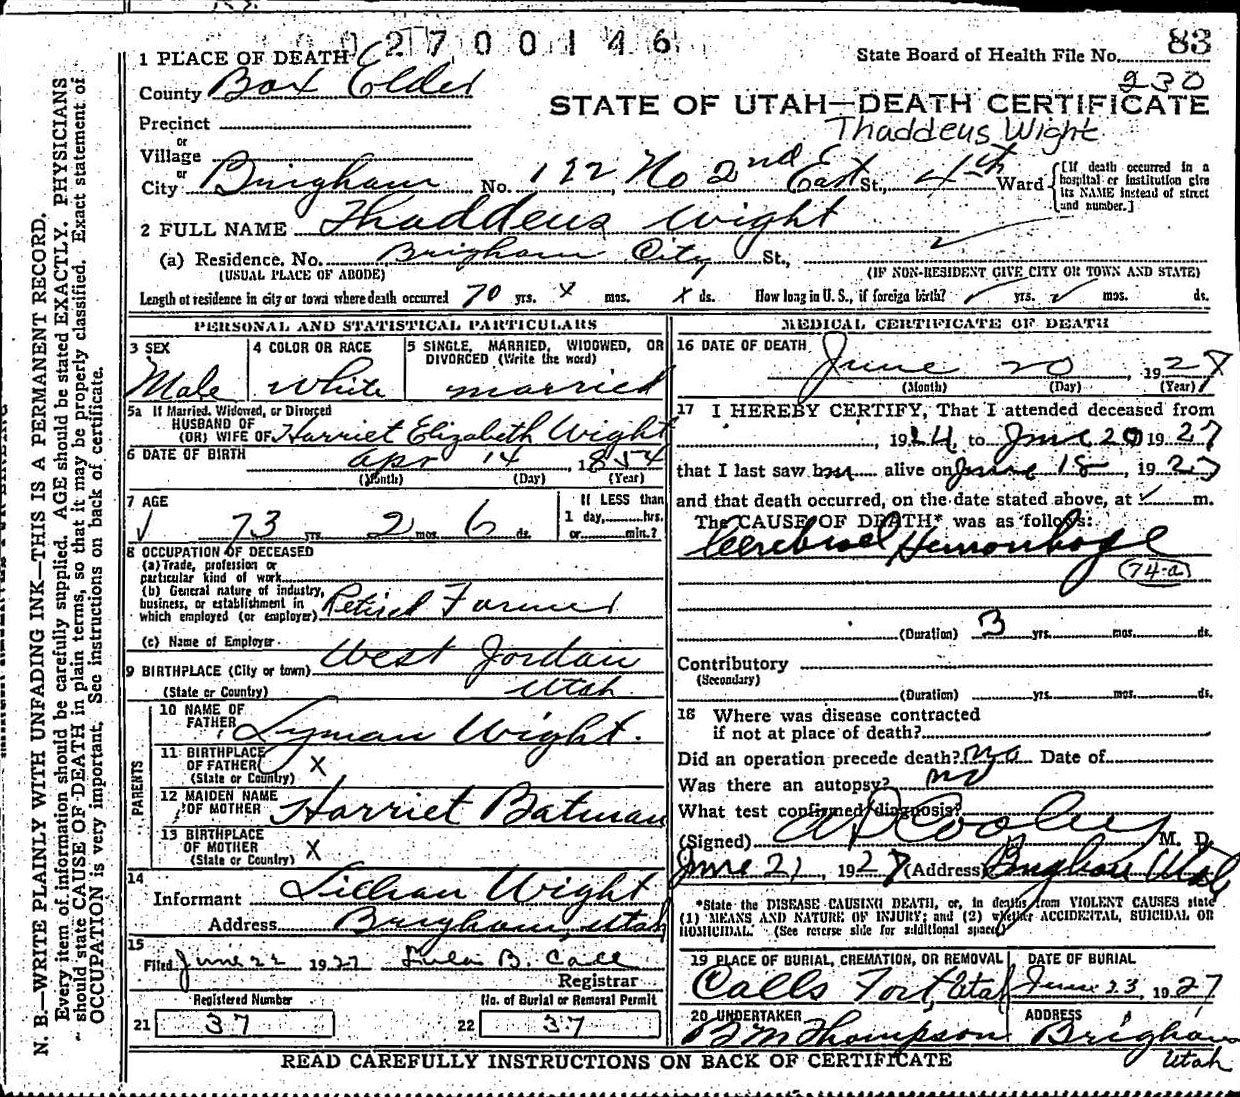 002700146
83
1 PLACE OF DEATH
State Board of Health File No.
230
County Box Elder
STATE OF UTAH—DEATH CERTIFICATE
Precinct
Thaddeus Wight
or
Village
or
City Brigham No. 122 No 2nd East St., 4th Ward
[If death occurred in a hospital or institution give its NAME instead of street and number.]
2 FULL NAME Thaddeus Wight
(a) Residence. No. Brigham City St.,
(USUAL PLACE OF ABODE) (IF NON-RESIDENT GIVE CITY OR TOWN AND STATE)
Length of residence in city or town where death occurred 70 yrs. x mos. x ds. How long in U. S., if foreign birth? ✓ yrs. ✓ mos. ds.
PERSONAL AND STATISTICAL PARTICULARS
3 SEX
Male
4 COLOR OR RACE
White
5 SINGLE, MARRIED, WIDOWED, OR DIVORCED (Write the word)
married
5a If Married, Widowed, or Divorced
HUSBAND OF
(OR) WIFE OF Harriet Elizabeth Wight
6 DATE OF BIRTH Apr 14, 1854
(Month) (Day) (Year)
7 AGE
✓ 73 yrs. 2 mos. 6 ds.
If LESS than
1 day, hrs.
or min.?
8 OCCUPATION OF DECEASED
(a) Trade, profession or
particular kind of work
(b) General nature of industry,
business, or establishment in
which employed (or employer) Retired Farmer
(c) Name of Employer
9 BIRTHPLACE (City or town) West Jordan
(State or Country) Utah
PARENTS
10 NAME OF
FATHER Lyman Wight.
11 BIRTHPLACE
OF FATHER
(State or Country) X
12 MAIDEN NAME
OF MOTHER Harriet Batman
13 BIRTHPLACE
OF MOTHER
(State or Country) X
14
Informant Lillian Wight
Address Brigham, Utah
15
Filed June 22 1927 B. Call
Registrar
Registered Number
21 37
No. of Burial or Removal Permit
22 37
MEDICAL CERTIFICATE OF DEATH
16 DATE OF DEATH
June 20, 1927
(Month) (Day) (Year)
17 I HEREBY CERTIFY, That I attended deceased from
, 1924, to June 20 1927
that I last saw him alive on June 18, 1927
and that death occurred, on the date stated above, at ✓ m.
The CAUSE OF DEATH* was as follows:
Cerebral Hemorrhage
74-a
(Duration) 3 yrs. mos. ds.
Contributory
(Secondary)
(Duration) yrs. mos. ds.
18 Where was disease contracted
if not at place of death?
Did an operation precede death? no Date of
Was there an autopsy? no
What test confirmed diagnosis?
(Signed) M. D.
June 21, 1927 (Address) Brigham Utah
*State the DISEASE CAUSING DEATH, or, in deaths from VIOLENT CAUSES state
(1) MEANS AND NATURE OF INJURY; and (2) whether ACCIDENTAL, SUICIDAL OR
HOMICIDAL. (See reverse side for additional space)
19 PLACE OF BURIAL, CREMATION, OR REMOVAL
Calls Fort, Utah
DATE OF BURIAL
June 23, 1927
20 UNDERTAKER
B M Thompson
ADDRESS
Brigham
Utah
READ CAREFULLY INSTRUCTIONS ON BACK OF CERTIFICATE
N. B.—WRITE PLAINLY WITH UNFADING INK—THIS IS A PERMANENT RECORD.
Every item of information should be carefully supplied. AGE should be stated EXACTLY. PHYSICIANS
should state CAUSE OF DEATH in plain terms, so that it may be properly classified. Exact statement of
OCCUPATION is very important. See instructions on back of certificate.